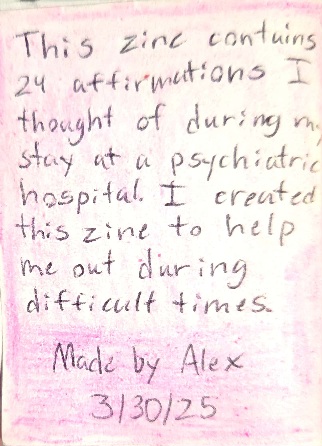 This zine contains
24 affirmations I
thought of during my
stay at a psychiatric
hospital. I created
this zine to help
me out during
difficult times.
Made by Alex
3/30/25